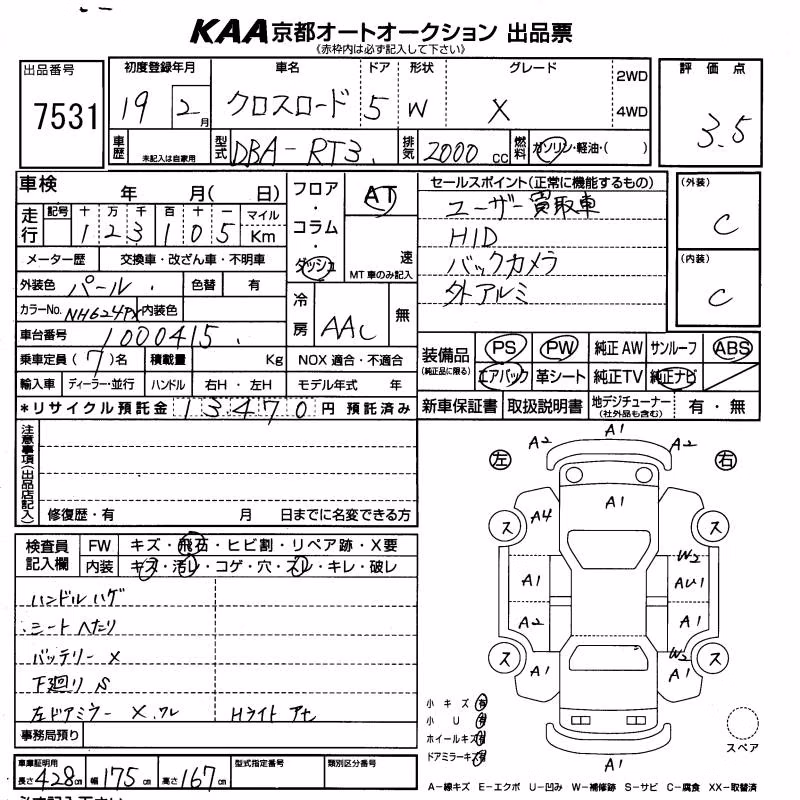 KAA 京都オートオークション 出品票
《赤枠内は必ず記入して下さい》
出品番号 7531
初度登録年月 車名 ドア 形状 グレード 2WD 4WD
19 2月 クロスロード 5 W X
評価点 3.5
車歴 未記入は自家用 型式 DBA-RT3. 排気 2000 cc 燃料 ガソリン・軽油・( )
車検 年 月( 日)
走行 記号 十 万 千 百 十 一 マイル Km
1 2 3 1 0 5
メーター歴 交換車・改ざん車・不明車
外装色 パール. 色替 有
カラーNo. NH624PX 内装色
車台番号 1000415.
乗車定員 (7)名 積載量 Kg NOX 適合・不適合
輸入車 ディーラー・並行 ハンドル 右H・左H モデル年式 年
*リサイクル預託金 13470 円 預託済み
フロア・コラム・ダッシュ
AT
速
MT車のみ記入
冷房 AAC 無
セールスポイント(正常に機能するもの)
ユーザー買取車
HID
バックカメラ
外アルミ
(外装) C
(内装) C
装備品 (純正品に限る) PS PW 純正AW サンルーフ ABS
エアバック 革シート 純正TV 純正ナビ
新車保証書 取扱説明書 地デジチューナー (社外品も含む) 有・無
注意事項(出品店記入)
修復歴・有 月 日までに名変できる方
検査員記入欄 FW キズ・飛石・ヒビ割・リペア跡・X要
内装 キズ・汚レ・コゲ・穴・スレ・キレ・破レ
ハンドルハゲ
シートへたり
バッテリー X
下廻り S
左ドアミラー X.ワレ Hライト アセ
事務局預り
車庫証明用 長さ 428cm 幅 175cm 高さ 167cm 型式指定番号 類別区分番号
左 右
A1
A2 A2
A1
A4
ス ス
W2
A1 AU1
A2 A1
W2
ス ス
A1 A1
A1
小キズ 有
小U 有
ホイールキズ 有
ドアミラーキズ 有
スペア
A-線キズ E-エクボ U-凹み W-補修跡 S-サビ C-腐食 XX-取替済